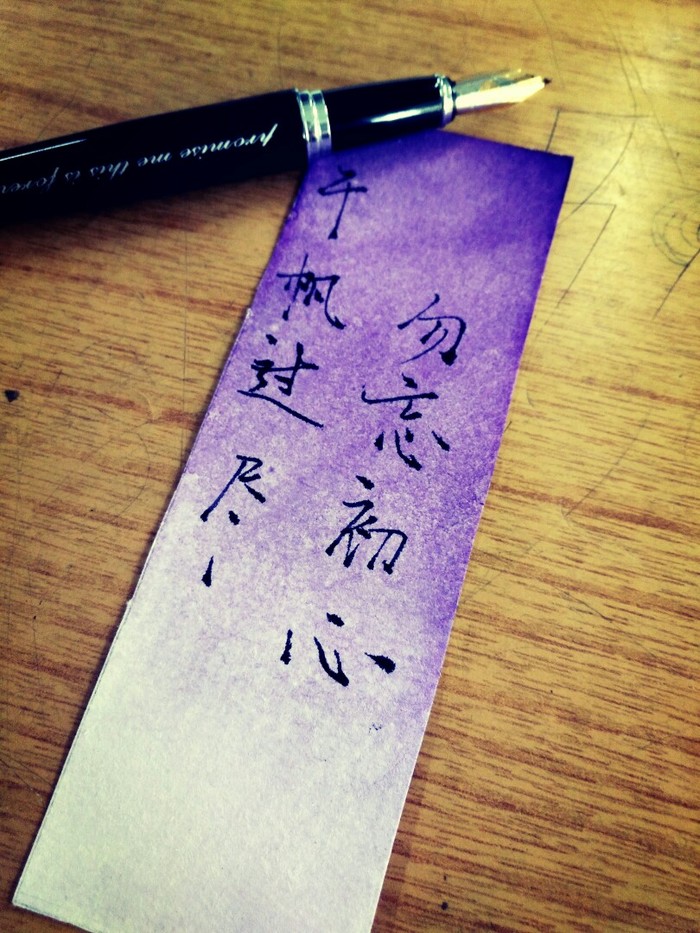 promise me this is forev
千帆过尽、
勿忘初心